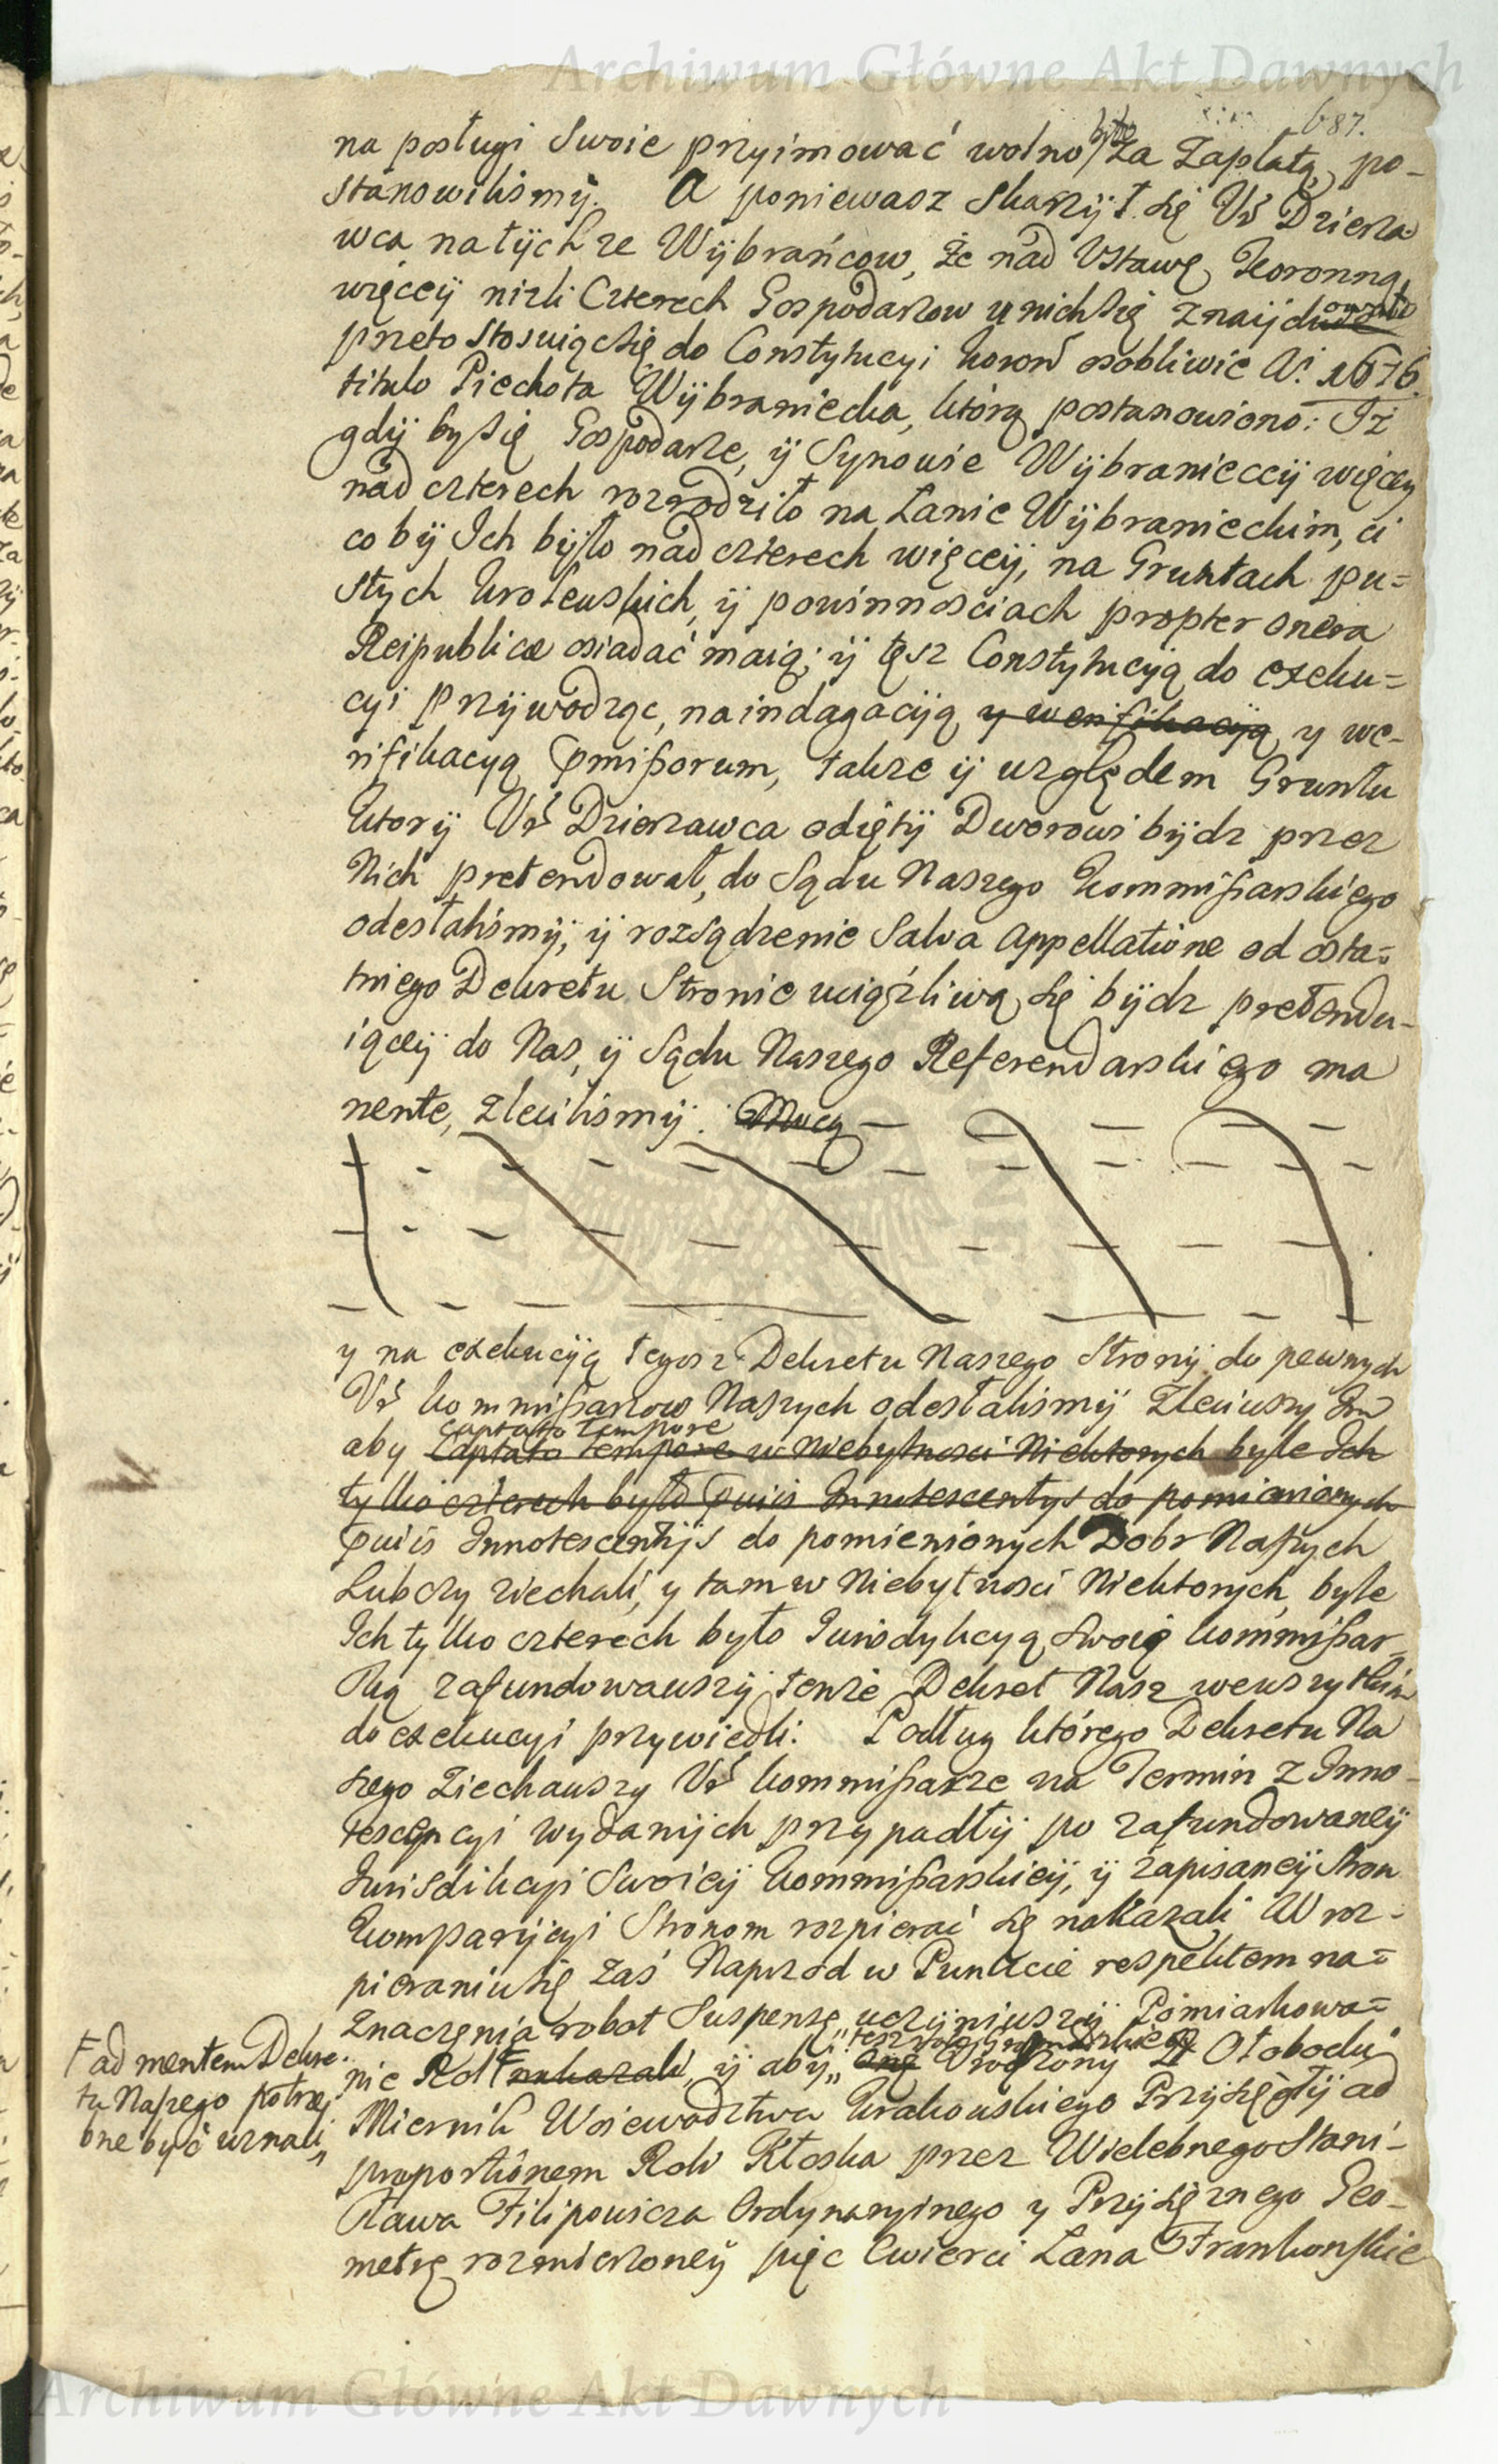 Archiwum Główne Akt Dawnych
687.
na posługi Swoie przyimować wolno było za Zapłatą, po-
stanowilismÿ. A poniewasz skarzÿł się Vr Dzierza-
wca na tÿchze Wÿbrańcow, że nad Vstawę Koronną,
więceÿ nizli Czterech Gospodarzow u nich się znaÿduie
przeto stosuiąc się do Constytucyi Koron osobliwie Ai 1676
titulo Piechota Wÿbraniecka, którą postanowiono: Iż
gdÿ by się Gospodarze, ÿ Synowie Wÿbranieccÿ więceÿ
nad czterech rozrodziło na Łanie Wÿbranieckim, ci
co bÿ Ich bÿło nad czterech więceÿ, na Gruntach pu=
stych Krolewskich, ÿ powinnosciach propter onera
Reipublicæ osiadać maią; ÿ tęsz Constytucyą do exeku=
cyi przÿwodząc, na indagacÿą y werifikacÿą y we-
rifikacyą pmissorum, takze ÿ względem Gruntu
ktorÿ Vr Dzierzawca odiętÿ Dworowi bÿdz przez
Nich pretendował, do Sądu Naszego Kommissarskiego
odesłalismÿ, ÿ rozsądzenie Salva Appellatione od osta=
tniego Dekretu Stronie uciążliwą się bÿdz pretendu-
iąceÿ do Nas, ÿ Sądu Naszego Referendarskiego ma
nente, zlecilismÿ. Mocą
y na exekucÿą tegosz Dekretu Naszego Stronÿ do pewnych
Vr Kommissarzow Naszych odesłalismÿ Zleciwszy Im
captato tempore
aby Captato tempore w Niebytnosci Niektorych byle Ich
tylko czterech było pviis Innotescentÿs do pomienionych
pviis Innotescentÿs do pomienionych Dobr Naszych
Lubczy ziechali, y tam w Niebytnosci Niektorych, byle
Ich tylko czterech było Jurisdykcyą Swoię Kommissar-
ską zafundowawszÿ tenze Dekret Nasz we wszystkim
do exekucyi przywiedli. Podług którego Dekretu Na
szego Ziechawszy Vr Kommissarze na Termin z Inno-
tescencyi wydanÿch przypadłÿ po zafundowaneÿ
Jurisdikcyi Swoieÿ Kommissarskieÿ, ÿ zapisaneÿ Stron
Komparÿcyi Stronom rozpierać się nakazali W roz-
pieraniu się zaś Naprzod w Punkcie respektem na=
znaczenia robot Suspensę uczÿniwszÿ Pomiarkowa=
nie Rol nakazali, ÿ abÿ one Vrodzony Otobocki
Miernik Woiewodztwa Krakowskiego Przÿsięgłÿ ad
proportionem Roli Kłoska przez Wielebnego Stani-
sława Filipowicza Ordynarÿinego y Przÿsięznego Geo-
metrę rozmierzoneÿ pięc Cwierci Łana Frankonskie
ad mentem Dekre-
tu Naszego potrze
bne być uznali
Archiwum Główne Akt Dawnych